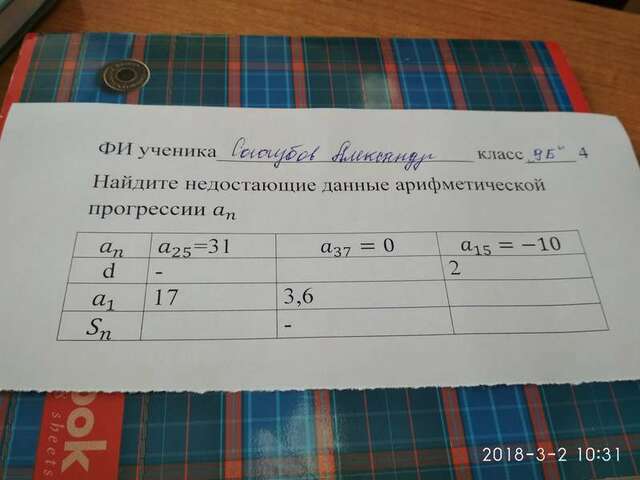 ФИ ученика Александр класс 9Б" 4
Найдите недостающие данные арифметической
прогрессии aₙ
aₙ a₂₅=31 a₃₇ = 0 a₁₅ = −10
d - 2
a₁ 17 3,6
Sₙ -
ook
sheets
2018-3-2 10:31